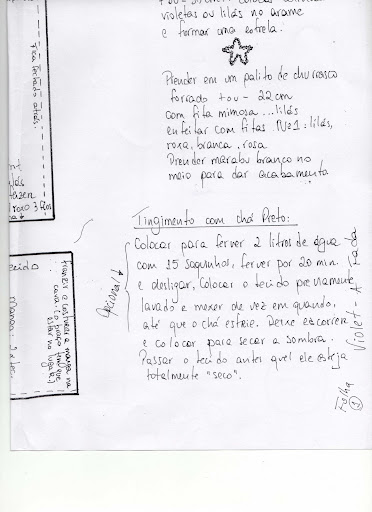 violetas ou lilás no arame
e formar uma estrela.
Prender em um palito de churrasco
forrado +ou- 22cm
com fita mimosa...lilás
enfeitar com fitas Nº1: lilás,
roxa, branca, rosa
Prender marabu branco no
meio para dar acabamento
Tingimento com chá Preto:
Opcional
Colocar para ferver 2 litros de água
com 15 saquinhos, ferver por 20 min.
e desligar, colocar o tecido previamente
lavado e mexer de vez em quando,
até que o chá esfrie. Deixe escorrer
e colocar para secar a sombra.
Passar o tecido antes que ele esteja
totalmente "seco".
Violet - A Fada
Folha
1
Fica fechado atrás.
franzir e costurar a manga na